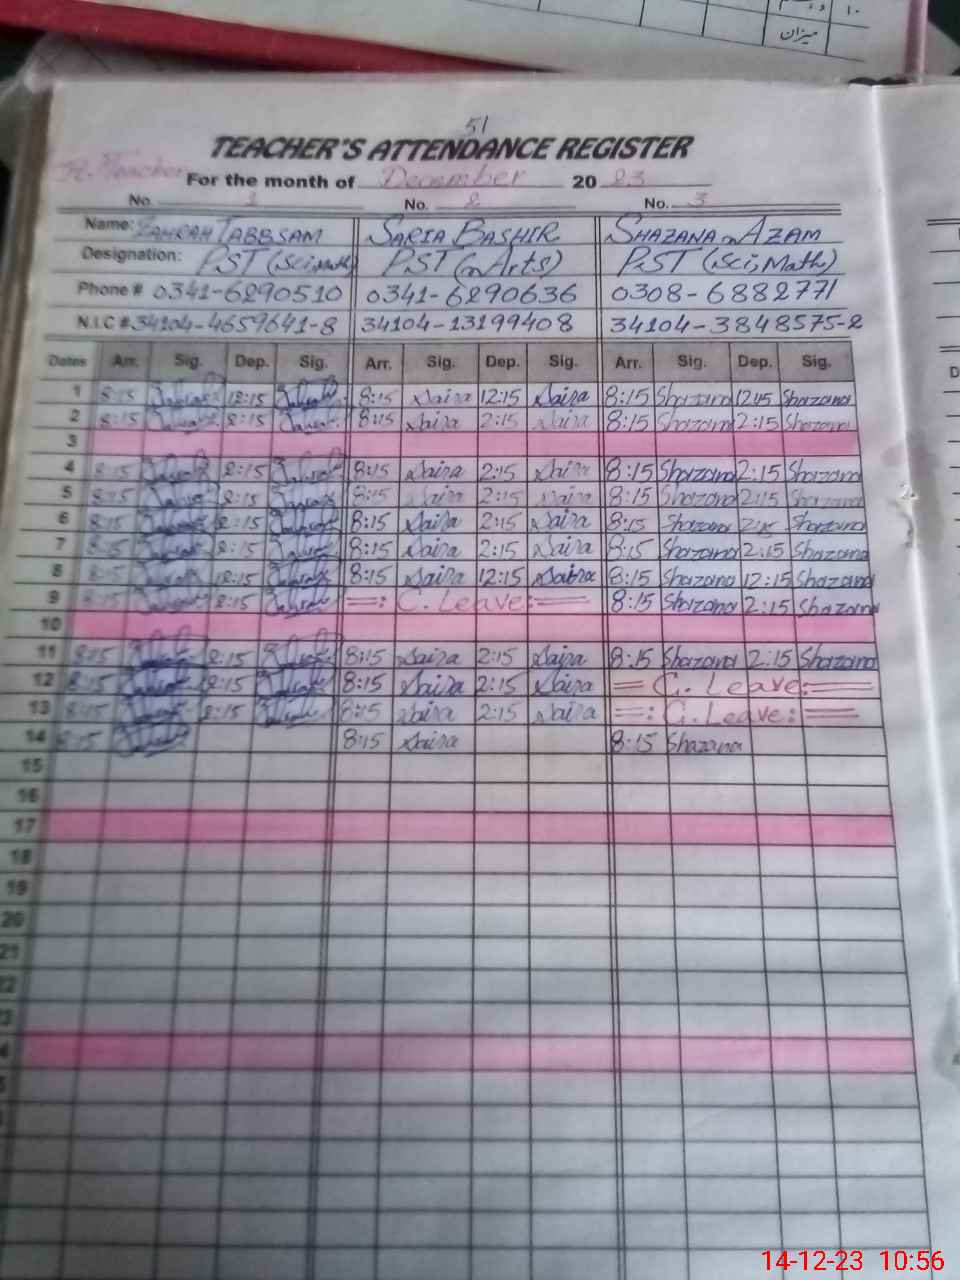 میزان
١٠
51
TEACHER'S ATTENDANCE REGISTER
H. Teacher
For the month of December 2023
No. 1 No. 2 No. 3
Name: ZAHRAH TABBSAM SARIA BASHIR SHAZANA AZAM
Designation: PST (Sci, Math) PST (Arts) PST (Sci, Math)
Phone # 0341-6290510 0341-6290636 0308-6882771
N.I.C # 34104-4659641-8 34104-13199408 34104-3848575-2
Dates Arr. Sig. Dep. Sig. Arr. Sig. Dep. Sig. Arr. Sig. Dep. Sig.
1 8:15 12:15 8:15 Saira 12:15 Saira 8:15 Shazana 12:15 Shazana
2 8:15 2:15 8:15 Saira 2:15 Saira 8:15 Shazana 2:15 Shazana
3
4 8:15 2:15 8:15 Saira 2:15 Saira 8:15 Shazana 2:15 Shazana
5 8:15 2:15 8:15 Saira 2:15 Saira 8:15 Shazana 2:15 Shazana
6 8:15 2:15 8:15 Saira 2:15 Saira 8:15 Shazana 2:15 Shazana
7 8:15 2:15 8:15 Saira 2:15 Saira 8:15 Shazana 2:15 Shazana
8 8:15 12:15 8:15 Saira 12:15 Saira 8:15 Shazana 12:15 Shazana
9 8:15 2:15 =: C. Leave := 8:15 Shazana 2:15 Shazana
10
11 8:15 2:15 8:15 Saira 2:15 Saira 8:15 Shazana 2:15 Shazana
12 8:15 2:15 8:15 Saira 2:15 Saira = C. Leave :=
13 8:15 2:15 8:15 Saira 2:15 Saira =: C. Leave :=
14 8:15 8:15 Saira 8:15 Shazana
15
16
17
18
19
20
21
22
3
4
14-12-23 10:56